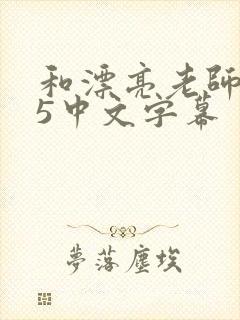 和漂亮老師
5中文字幕
夢落塵埃